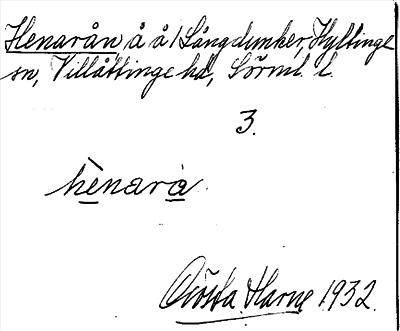 Henarån, å å/ Långdunker, Hyltinge
sn, Villåttinge hd, Sörml. l.
3.
hènarà
Gösta Harne 1932.